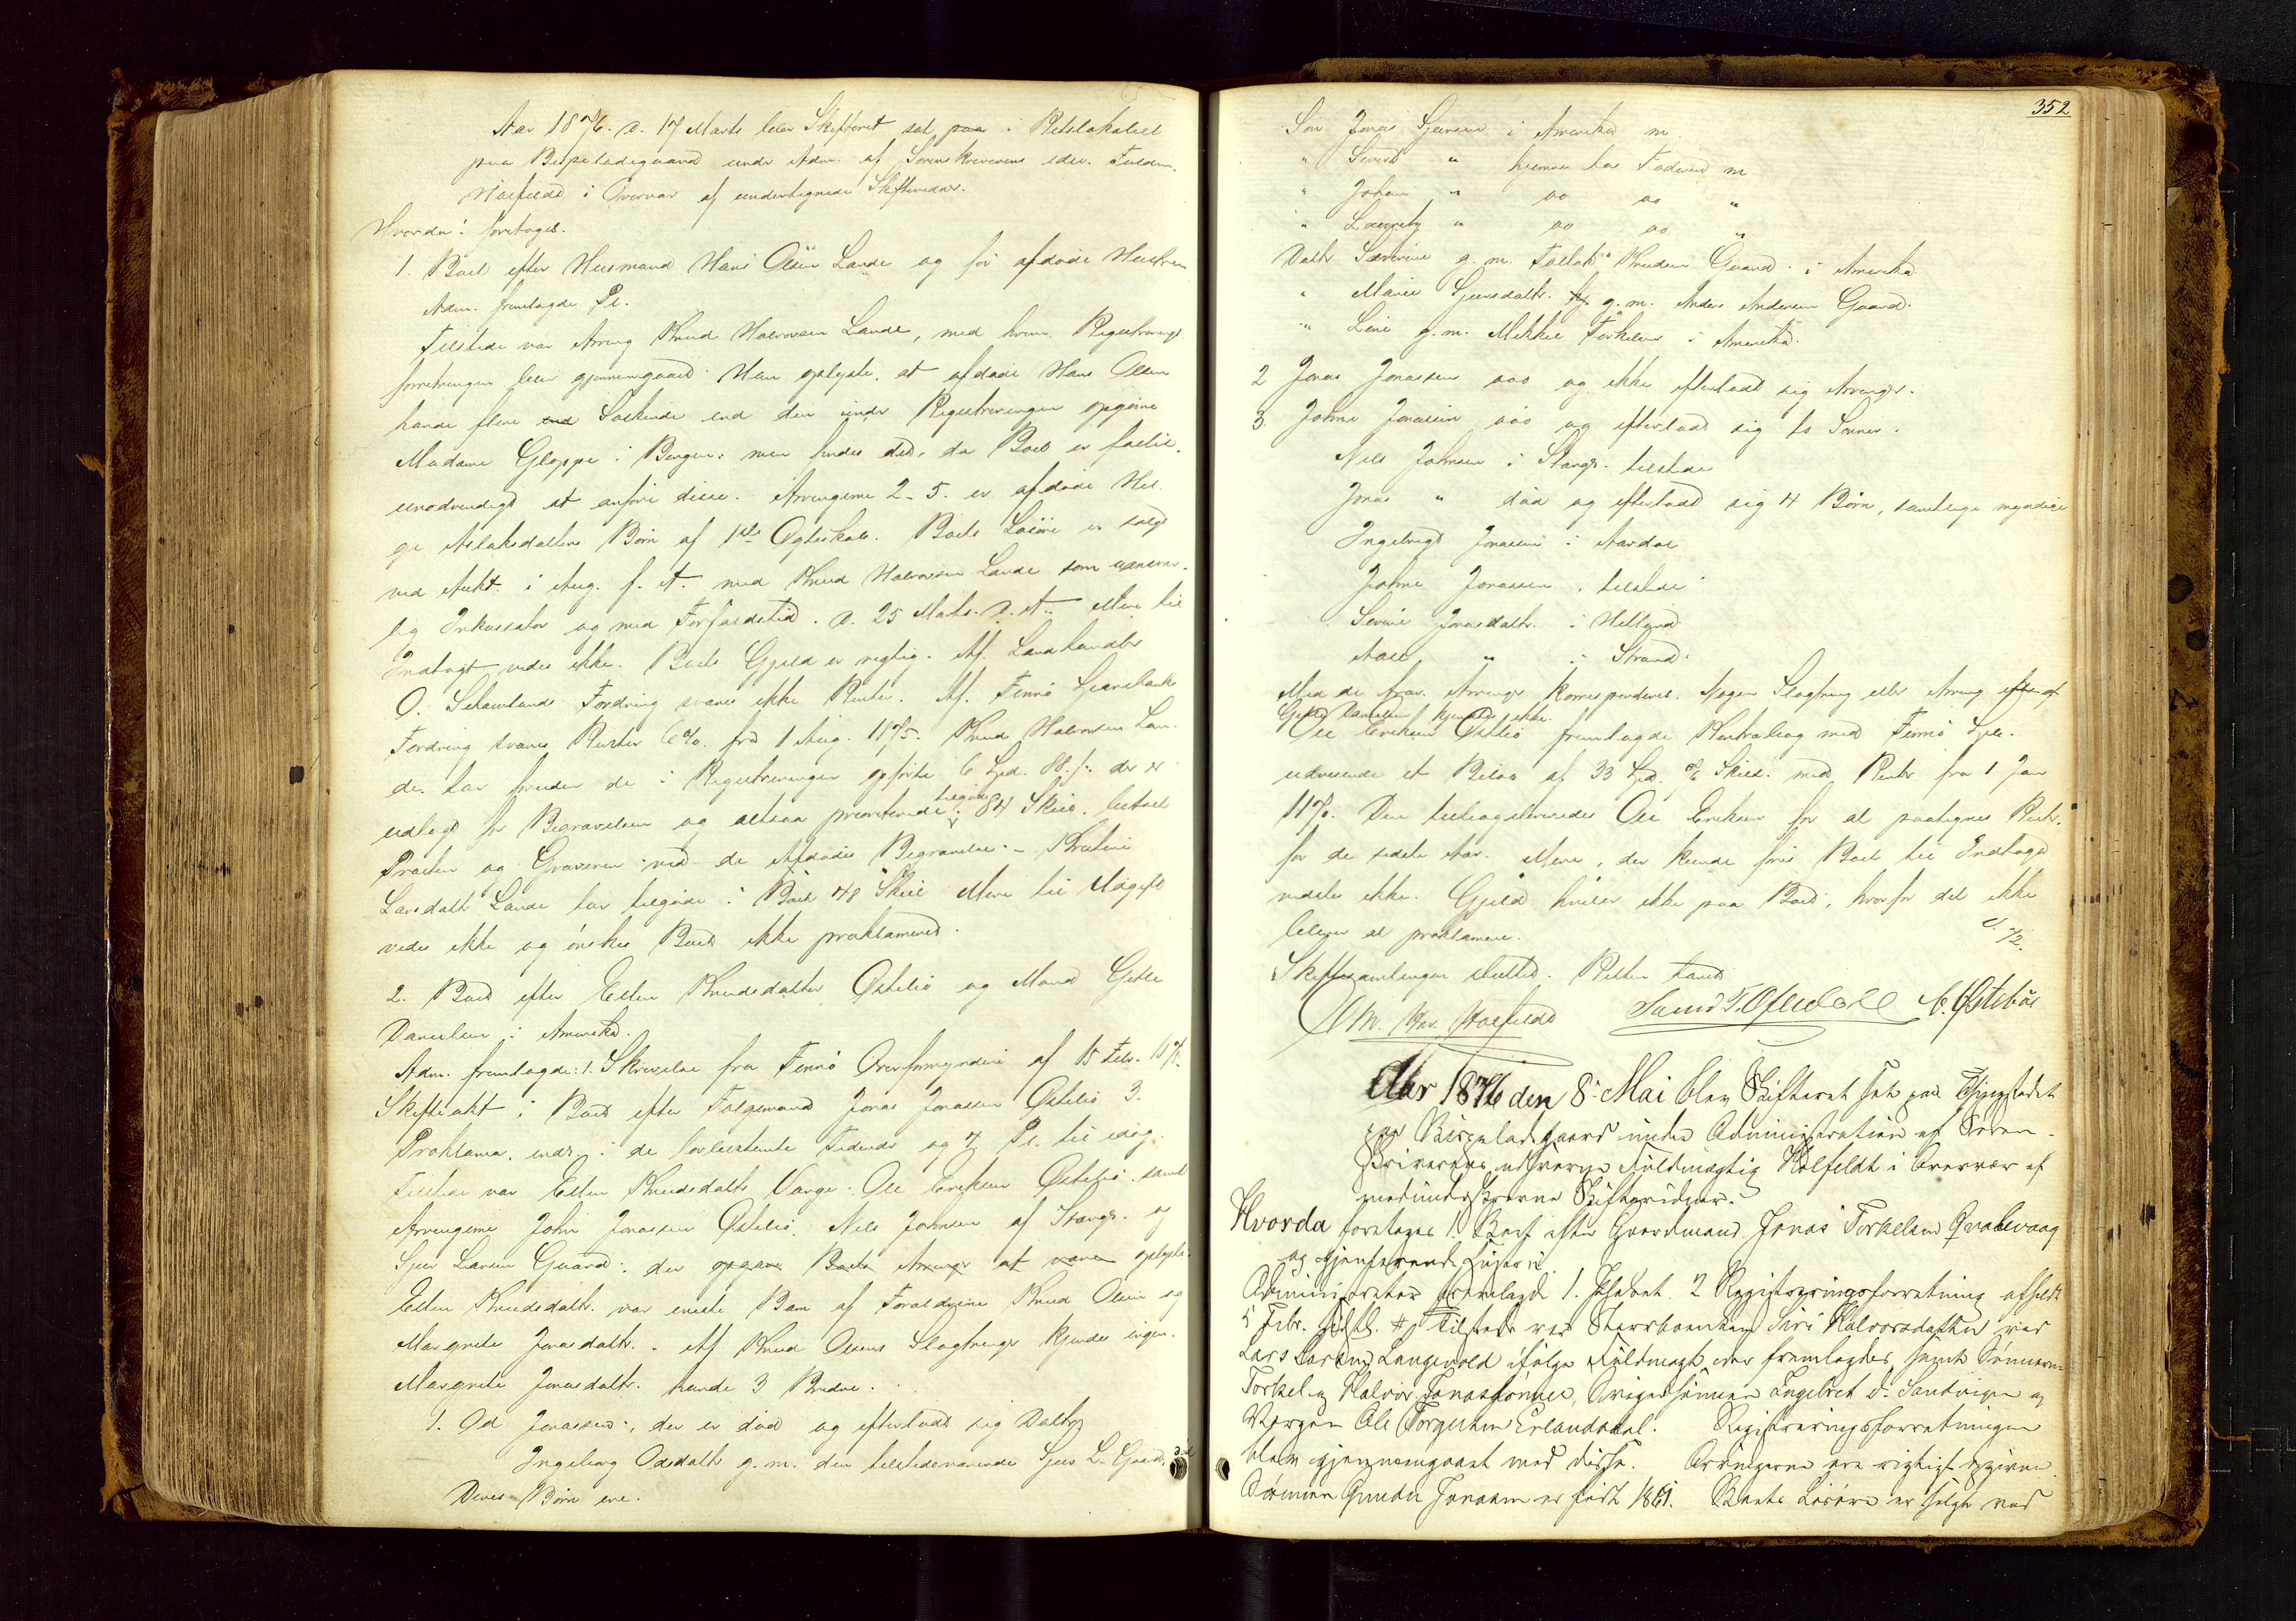 Aar 1876. d. 17 Marts blev Skifteret sat paa i Retslokalet
paa Bispeladegaard under Adm. af Sorenskriverens edsv. Fuldm.
Holfeldt i Overvær af undertegnede Skiftevidner.
Hvorda: foretages.
1. Boet efter Husmand Hans Olsen Lande og før afdøde Hustru
Adm. fremlagde Pr.
Tilstede var Arving Knud Halvorsen Lande, med hvem Registrerings
forretningen blev gjennemgaaet. Han oplyste, at afdøde Hans Olsen
havde flere end Søskende end den under Registreringen opgivne
Madame Gloppe i Bergen: men fandtes det, da Boet er fallit,
unødvendigt at anføre disse. Arvingerne 2-5. er afdøde Hel
ge Aslaksdatters Børn af 1ste Ægteskab. Boets Løsøre er solgt
ved Aukt. i Aug. f. A. med Knud Halvorsen Lande som ansvar-
lig Inkassator og med Forfaldstid d. 25 Marts d. A. Mere til
Indtægt vides ikke. Boets Gjeld er rigtig. Af Landhandler
O. Fordring svares ikke Renter. Af Finnø Sparebanks
Fordring svares Renter 6 % fra 1 Aug. 1875. Knud Halvorsen Lan-
de har foruden de i Registreringen opførte 6 Spd. 88 s. der er
udlagt for Begravelsen og altsaa prioriterede tilgode 84 Skill. betalt
Præsten og Graveren ved de Afdødes Begravelse. - Kristine
Larsdatt Lande har tilgode i Boet 48 Skill Mere til Udgift
vides ikke og ønskes Boet ikke proklameret.
2. Boet efter Ellen Knudsdatter Østebø og Mand Gitle
Danielsen i Amerika.
Adm. fremlagde: 1. Skrivelse fra Finnø Overformynderi af 15 Febr. 1875.
Skifteakt i Boet efter Folgemand Jonas Jonassen Østebø 3.
Proklama, indr. i de lovbestemte Tidender og 4 Pr. til idag.
Tilstede var Ellen Knudsdatters Værge: Ole Eriksen Østebø samt
Arvingerne John Jonassen Østebø, Nils Johnsen af Stavgr. og
Sjur Larsen Gaard: der opgave Boets Arvinger at være oplyste:
Ellen Knudsdatt. var eneste Barn af Forældrene Knud Olsen og
Margrete Jonasdatt. Af Knud Olsens Slægtninge kjendes ingen.
Margrete Jonasdatt. havde 3 Brødre.
1. Od Jonassen, der er død og efterlod sig Datter
Ingeborg Odsdatt g. m. den tilstedeværende Sjur L. Gaard, død
Deres Børn ere.
352
Søn Jonas Sjursen i Amerika m.
" Sivert " hjemme hos Faderen m
" Johan " do do "
" Lauritz " do do "
Datt Severine g. m. Tollak Knudsen Gaard i Amerika
" Marie Sjursdatt. g. m. Anders Andersen Gaard.
" Line g. m. Mikkel Torkelsen i Amerika.
2 Jonas Jonassen død og ikke efterladt sig Arvinger.
3. Johne Jonassen død og efterlod sig to Sønner.
Nils Johnsen i Stavgr. tilstede
Jonas " død og efterlod sig 4 Børn, samtlige myndige
Ingebregt Jonassen i Aardal
Johne Jonassen, tilstede
Serine Jonasdatt. i Helland
Aase " i Strand.
Med de fravr. Arvinger korresponderes. Nogen Slægtning eller Arving efter af
Gitle Danielsen kjendes ikke.
Ole Eriksen Østebø fremlagde Kontrabog med Finnø
udvisende et Beløb af 33 Spd. Skill. med Renter fra 1 Jan
1170. Den tilbageleveredes Ole Eriksen for at paategnes Renter
for de sidste Aar. Mere, der kunde føres Boet til Indtægt
vidstes ikke. Gjeld hviler ikke paa Boet, hvorfor det ikke
bliver at proklamere.
Skiftesamlingen sluttet. Retten hævet
M. Holfeldt C. Østebøe
Aar 1876 den 8. Mai blev Skifteret sat paa Thingstedet
paa Bispeladegaard under Administration af Soren-
skriverens edsvorne Fuldmægtig Holfeldt i Overvær af
medunderskrevne Skiftevidner.
Hvorda foretoges 1. Boet efter Gaardmand Jonas Torkelsen Qvalevaag
og gjenlevende Hustru.
Administrator fremlagde 1. Pr. 2 Registreringsforretning afholdt
5 Febr. sidstl. Tilstede var Stervboenken Siri Halvorsdatter ved
Lars Larsen Langevold ifølge Fuldmagt der fremlagdes, samt Sønnerne
Torkel og Halvor Jonassønner, Svigersønnen Ingebret Sandvigen og
Værgen Ole Torgersen Erlandsdal. Registreringsforretningen
blev gjennemgaaet med disse. Arvingerne ere rigtigt opgivne
Sønnen Gunder Jonassen er født 1861. Boets Løsøre er solgt ved